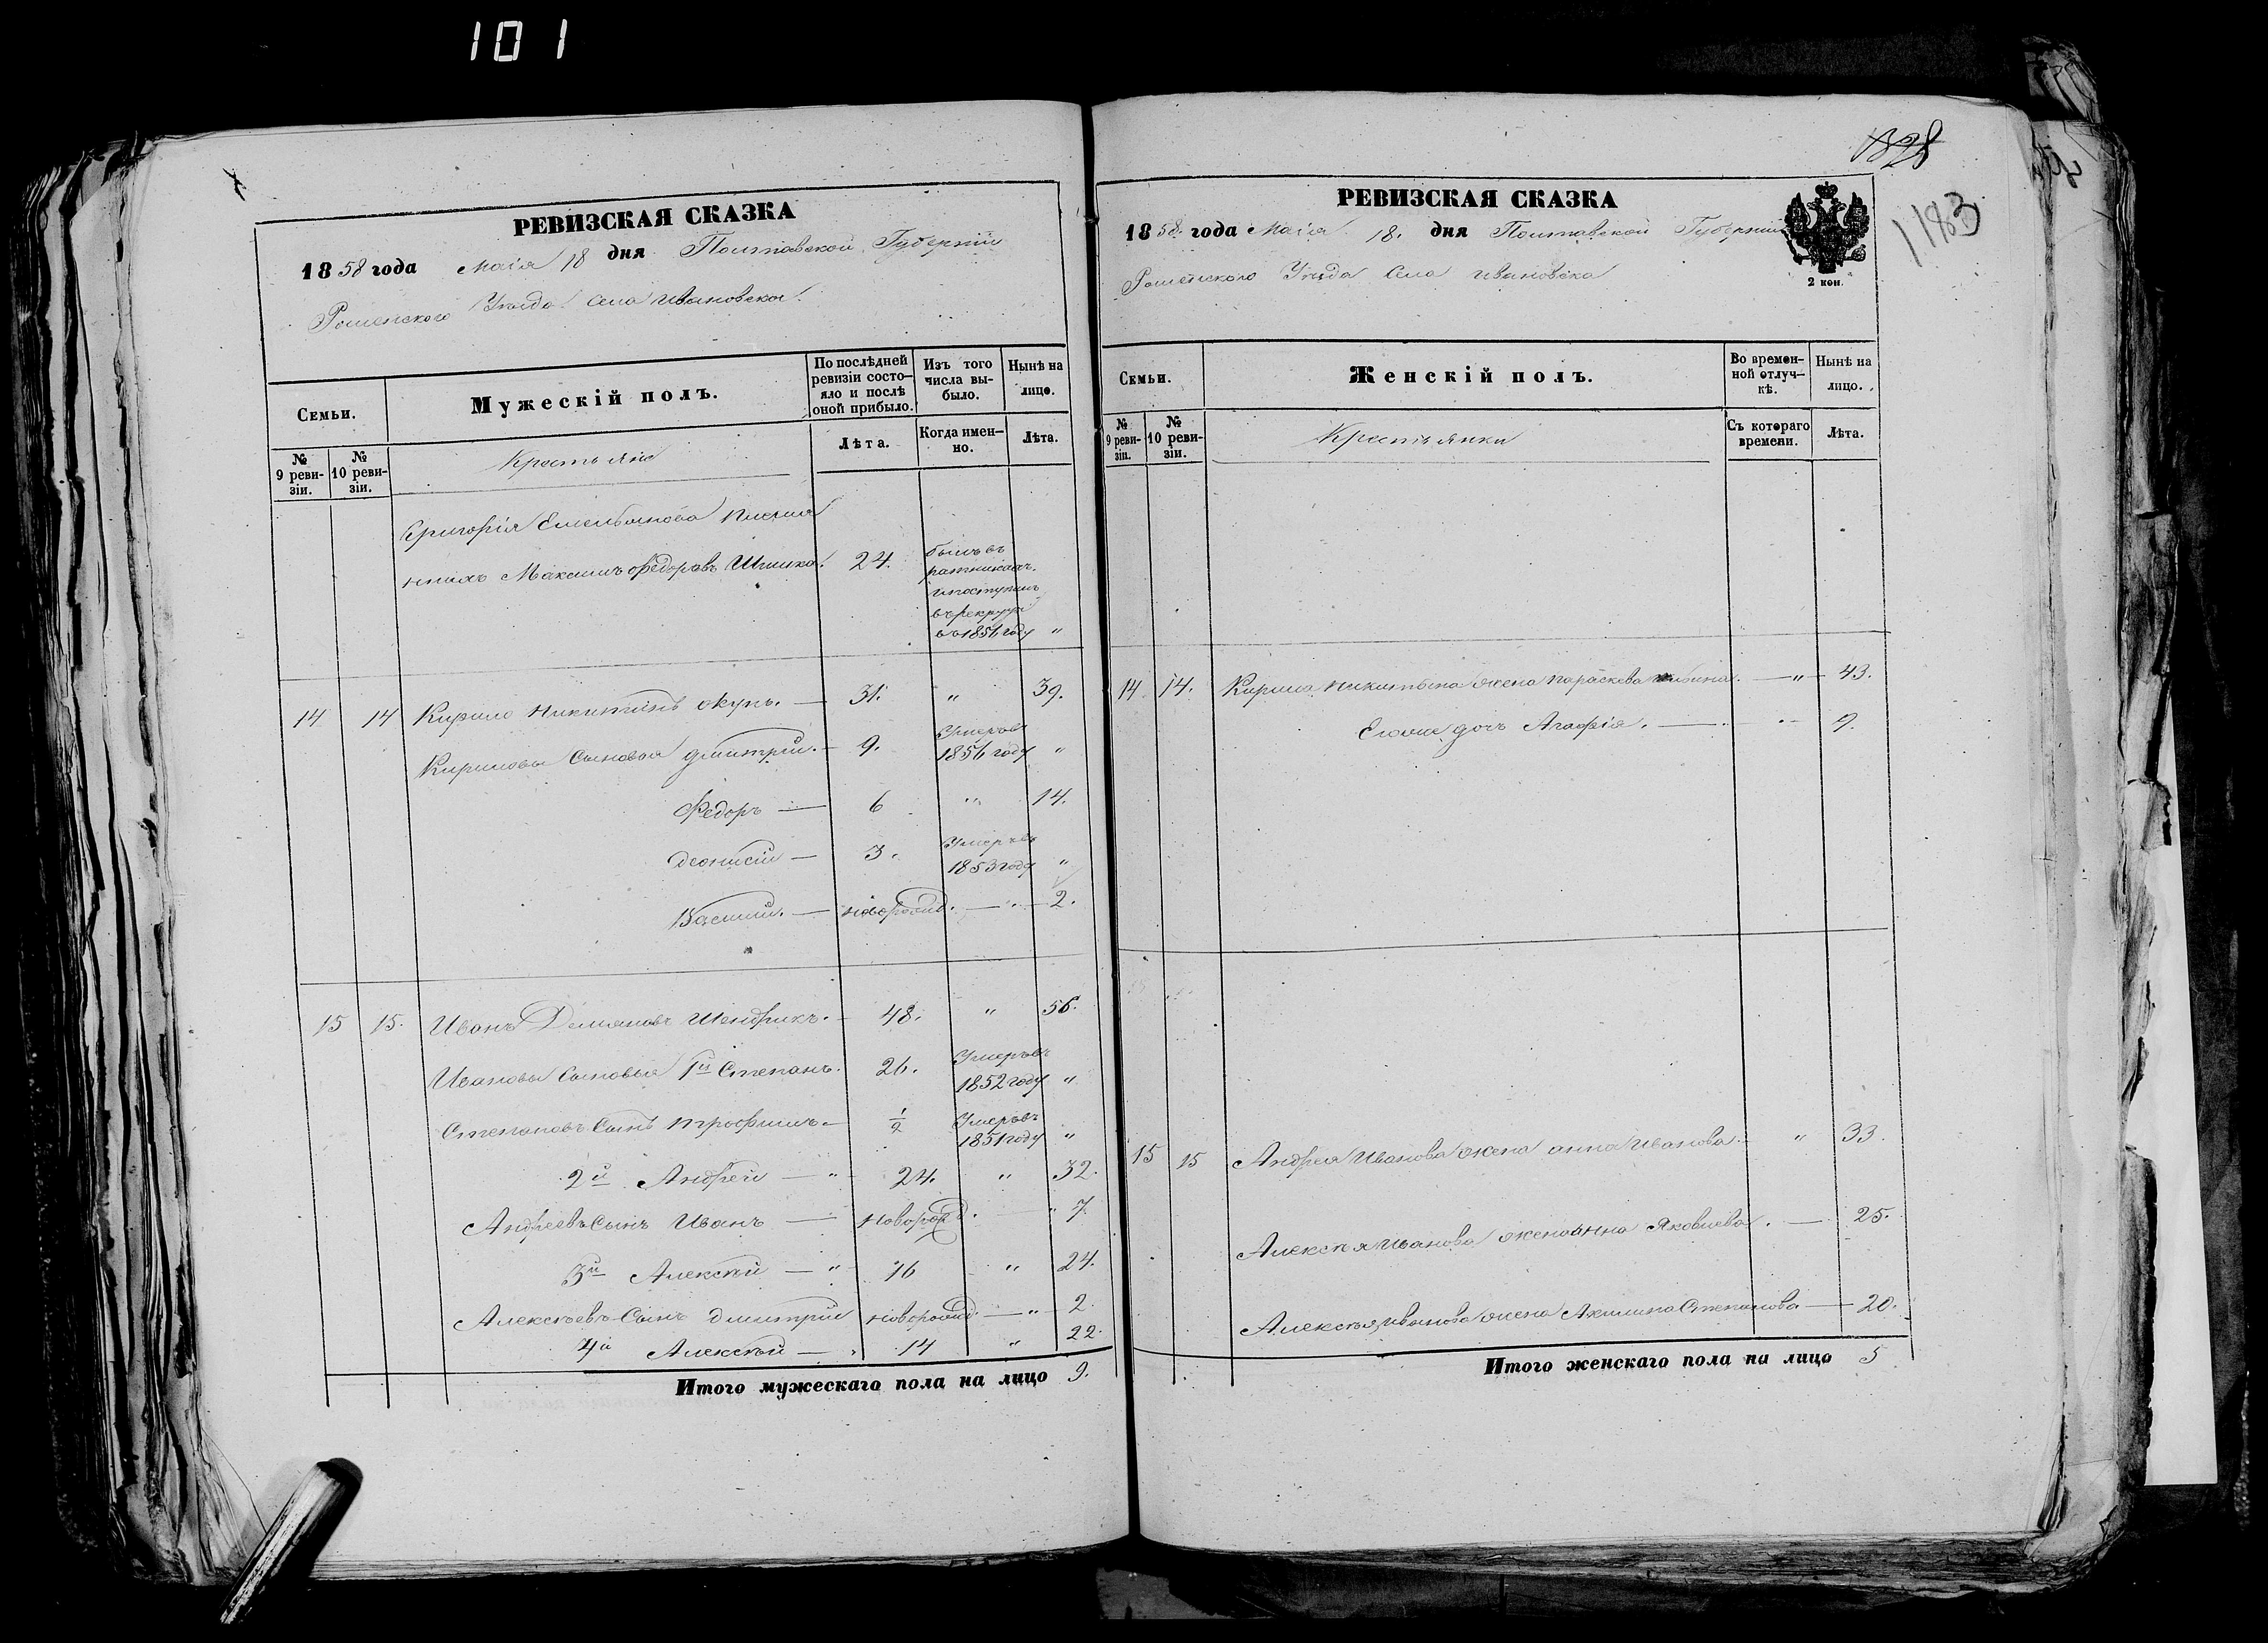 101
РЕВИЗСКАЯ СКАЗКА
1858 года Маія 18 дня Полтавской Губерніи
Роменского Уезда Села Ивановска
Семьи.
Мужескій полъ.
По послѣдней ревизіи состо-
яло и послѣ
оной прибыло.
Изъ того
числа вы-
было.
Нынѣ на
лицо.
№
9 реви-
зіи.
№
10 реви-
зіи.
Крестьяне
Лѣта.
Когда имен-
но.
Лѣта.
Григорія Емельянова
Максимъ Федоровъ Шишка 24. былъ въ
ратникахъ
и поступилъ
въ рекруты
въ 1856 году "
14 14 Кирило Никитинъ Окунь. — 31. " 39.
Кириловы Сыновья Дмитрій. — 9. Умеръ въ
1856 году "
Федоръ — 6 " 14.
Деонисій — 3. Умеръ въ
1853 году "
Василій. — новорожд. — " — 2.
15 15. Иванъ Демяновъ Шендрикъ. — 48. " 56.
Ивановы Сыновья 1й Степанъ. 26. Умеръ въ
1852 году "
Степановъ Сынъ Трофимъ — 1/2 Умеръ въ
1851 году "
2й Андрей — " 24. " 32.
Андреевъ Сынъ Иванъ — новорожд. — " 7.
3й Алексѣй — " 16 " 24.
Алексѣевъ Сынъ Дмитрій новорожд. — " — 2.
4й Алексѣй — " 14 " 22.
Итого мужескаго пола на лицо 9.
1183
РЕВИЗСКАЯ СКАЗКА
1858. года Маія 18. дня Полтавской Губерніи
Роменского Уезда Села Ивановска
2 коп.
Семьи.
Женскій полъ.
Во времен-
ной отлуч-
кѣ.
Нынѣ на
лицо.
№
9 реви-
зіи.
№
10 реви-
зіи.
Крестьянки
Съ котораго
времени.
Лѣта.
14 14. Кирила Никитина жена Параскева — " — 43.
дочь Агафія. — " 9.
15 15 Андрея Иванова жена Анна Иванова — " 33.
Алексѣя Иванова жена Анна Яковлева. — 25.
Алексѣя Иванова жена Акилина Степанова — 20.
Итого женскаго пола на лицо 5